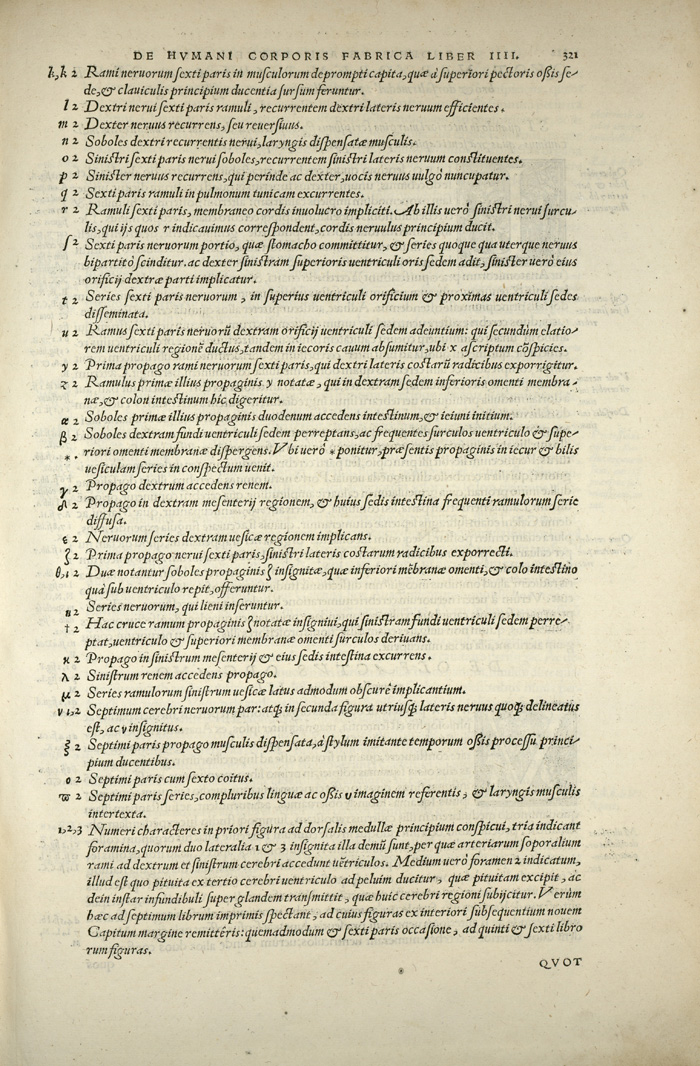 DE HVMANI CORPORIS FABRICA LIBER IIII. 321
k,k 2 Rami neruorum ſexti paris in muſculorum deprompti capita, quæ à ſuperiori pectoris oßis ſe-
de, & clauiculis principium ducentia ſurſum feruntur.
l 2 Dextri nerui ſexti paris ramuli, recurrentem dextri lateris neruum efficientes.
m 2 Dexter neruus recurrens, ſeu reuerſiuus.
n 2 Soboles dextri recurrentis nerui, laryngis diſpenſatæ muſculis.
o 2 Siniſtri ſexti paris nerui ſoboles, recurrentem ſiniſtri lateris neruum conſtituentes.
p 2 Siniſter neruus recurrens, qui perinde ac dexter, uocis neruus uulgò nuncupatur.
q 2 Sexti paris ramuli in pulmonum tunicam excurrentes.
r 2 Ramuli ſexti paris, membraneo cordis inuolucro impliciti. Ab illis uerò ſiniſtri nerui ſurcu-
lis, qui ijs quos r indicauimus correſpondent, cordis neruulus principium ducit.
ſ 2 Sexti paris neruorum portio, quæ ſtomacho committitur, & ſeries quoque qua uterque neruus
bipartitò ſcinditur. ac dexter ſiniſtram ſuperioris uentriculi oris ſedem adit, ſiniſter uerò eius
orificij dextræ parti implicatur.
t 2 Series ſexti paris neruorum, in ſuperius uentriculi orificium & proximas uentriculi ſedes
diſſeminata.
u 2 Ramus ſexti paris neruorū dextram orificij uentriculi ſedem adeuntium: qui ſecundùm elatio-
rem uentriculi regionē ductus, tandem in iecoris cauum abſumitur, ubi x aſcriptum cōſpicies.
y 2 Prima propago rami neruorum ſexti paris, qui dextri lateris coſtarū radicibus exporrigitur.
z 2 Ramulus primæ illius propaginis y notatæ, qui in dextram ſedem inferioris omenti membra-
næ, & colon inteſtinum hic digeritur.
α 2 Soboles primæ illius propaginis duodenum accedens inteſtinum, & ieiuni initium.
β 2 Soboles dextram fundi uentriculi ſedem perreptans, ac frequentes ſurculos uentriculo & ſupe-
*. riori omenti membranæ diſpergens. Vbi uerò * ponitur, præſentis propaginis in iecur & bilis
ueſiculam ſeries in conſpectum uenit.
γ 2 Propago dextrum accedens renem.
δ 2 Propago in dextram meſenterij regionem, & huius ſedis inteſtina frequenti ramulorum ſerie
diffuſa.
ε 2 Neruorum ſeries dextram ueſicæ regionem implicans.
ζ 2 Prima propago nerui ſexti paris, ſiniſtri lateris coſtarum radicibus exporrecti.
θ,ι 2 Duæ notantur ſoboles propaginis ζ inſignitæ, quæ inferiori mēbranæ omenti, & colo inteſtino
quà ſub uentriculo repit, offeruntur.
η 2 Series neruorum, qui lieni inſeruntur.
† 2 Hac cruce ramum propaginis ζ notatæ inſigniui, qui ſiniſtram fundi uentriculi ſedem perre-
ptat, uentriculo & ſuperiori membranæ omenti ſurculos deriuans.
κ 2 Propago in ſiniſtrum meſenterij & eius ſedis inteſtina excurrens.
λ 2 Siniſtrum renem accedens propago.
μ 2 Series ramulorum ſiniſtrum ueſicæ latus admodum obſcurè implicantium.
ν 1,2 Septimum cerebri neruorum par: atq; in ſecunda figura utriuſq; lateris neruus quoq; delineatus
eſt, ac ν inſignitus.
ξ 2 Septimi paris propago muſculis diſpenſata, à ſtylum imitante temporum oßis proceſſu princi-
pium ducentibus.
ο 2 Septimi paris cum ſexto coitus.
ϖ 2 Septimi paris ſeries, compluribus linguæ ac oßis υ imaginem referentis, & laryngis muſculis
intertexta.
1,2,3 Numeri characteres in priori figura ad dorſalis medullæ principium conſpicui, tria indicant
foramina, quorum duo lateralia 1 & 3 inſignita illa demū ſunt, per quæ arteriarum ſoporalium
rami ad dextrum et ſiniſtrum cerebri accedunt uētriculos. Medium uerò foramen 2 indicatum,
illud eſt quo pituita ex tertio cerebri uentriculo ad peluim ducitur, quæ pituitam excipit, ac
dein inſtar infundibuli ſuper glandem tranſmittit, quæ huic cerebri regioni ſubijcitur. Verùm
hæc ad ſeptimum librum imprimis ſpectant, ad cuius figuras ex interiori ſubſequentium nouem
Capitum margine remittêris: quemadmodum & ſexti paris occaſione, ad quinti & ſexti libro
rum figuras.
QVOT